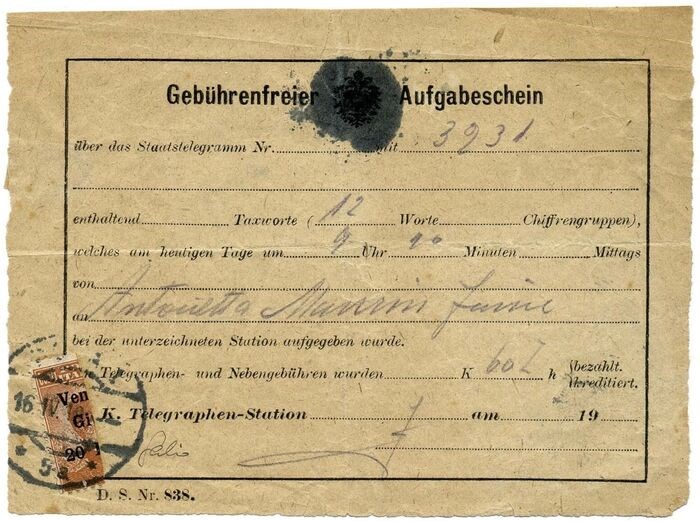 Gebührenfreier Aufgabeschein
über das Staatstelegramm Nr. mit 3931
enthaltend Taxworte (12 Worte Chiffrengruppen),
welches am heutigen Tage um 9 Uhr 20 Minuten Mittags
von
an Antonietta
bei der unterzeichneten Station aufgegeben wurde.
n Telegraphen- und Nebengebühren wurden K 60 h {bezahlt. kreditiert.
K. Telegraphen-Station am 19
Ven
Gi
20
16
5
D. S. Nr. 838.